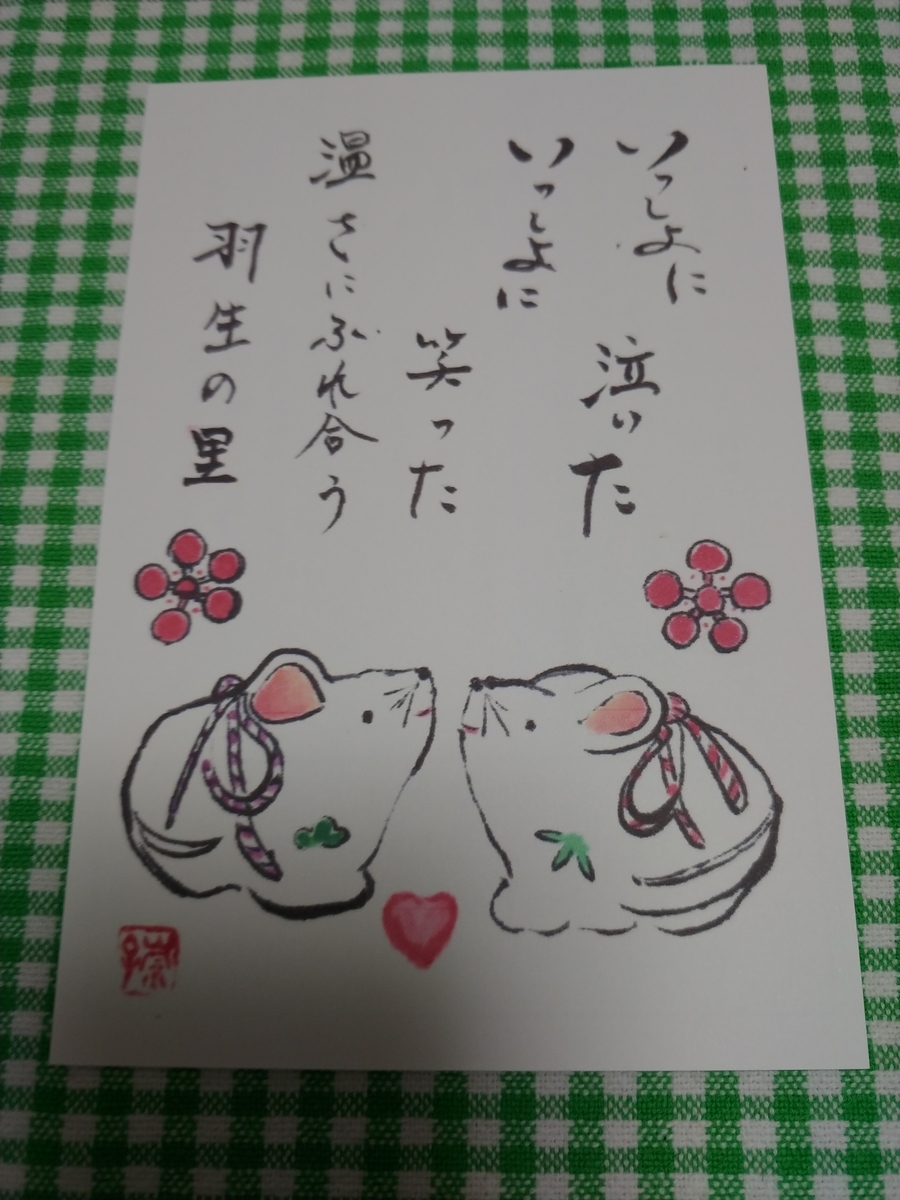 いっしょに
泣いた
いっしょに
笑った
温さにふれ合う
羽生の里